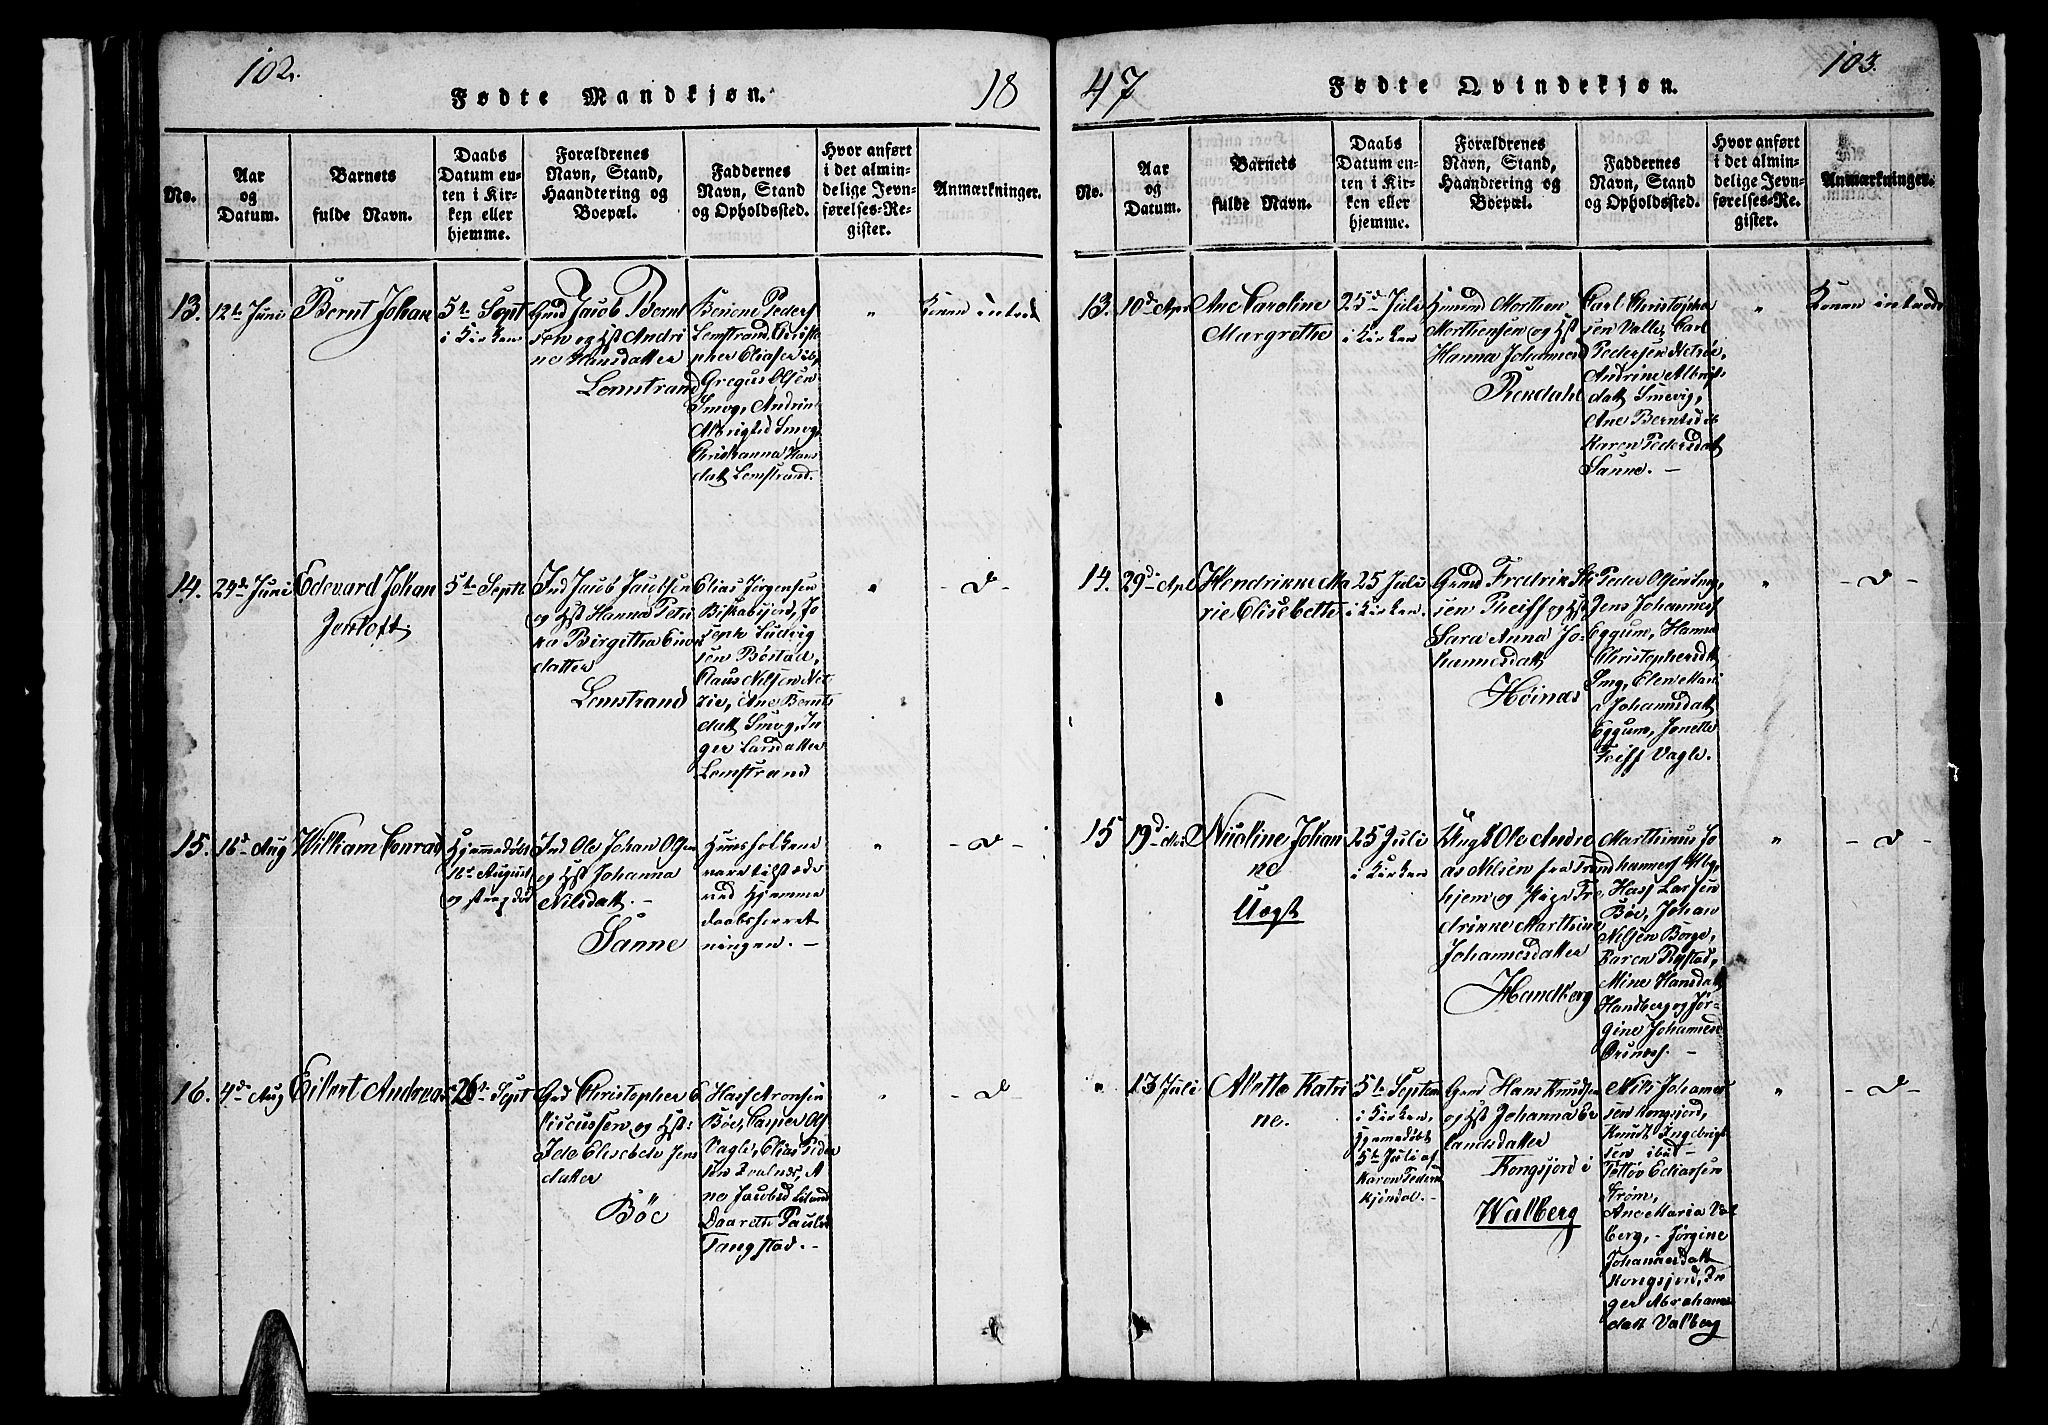 102.
Fødte Mandkjøn.
18
No.
Aar
og
Datum.
Barnets
fulde Navn.
Daabs
Datum en-
ten i Kir-
ken eller
hjemme.
Forældrenes
Navn, Stand,
Haandtering og
Boepæl.
Faddernes
Navn, Stand
og Opholdssted.
Hvor anført
i det almin-
delige Jevn-
førelses-Re-
gister.
Anmærkninger.
13.
12te Juni
Bernt Johan
5te Sept
i Kirken
Gmd Jacob Bernt
sen og Hst Andri
ne Hansdatter
Lemstrand
Lemstrand, Christo
pher Eliasen ib,
Gregus Olsen
Smog, Andrine
Albrigtsd Smog,
Christianna Hans
datt Lemstrand.
"
Konen introd
14.
24de Juni
Edevard Johan
Jentoft
5te Septr
Ind Jacob Jacobsen
og Hst Hanna Petri
ka Birgitha
datter
Lemstrand
Elias Jørgensen
Jo
seph Ludvig
sen Bøstad,
Claus Nilsen
Ane Bernts
datt Smog, In
ger Larsdatter
Lemstrand
"
– d –
15.
16d Aug
William Conrad
Hjemmedøbt
16de August
og strax død
Ind Ole Johan Olsen
og Hst Johanna
Nilsdatt. –
Sanne
Huusfolkene
vare tilstæde
ved Hjemme
daabsforret
ningen. –
"
– d –
16.
4de Aug
Eilert Andreas
26te Sept
Gmd Christopher
og Hst
Ide Elisebeth Jens
datter
Bøe
Hass Aronsen
Bøe, Casper Ols
Vagle, Elias Peder
sen
A
ne Jacobsd
Daareth Paulsd
Tangstad. –
"
– d –
47
Fødte Qvindekjøn.
103.
No.
Aar
og
Datum.
Barnets
fulde Navn.
Daabs
Datum en-
ten i Kir-
ken eller
hjemme.
Forældrenes
Navn, Stand,
Haandtering og
Boepæl.
Faddernes
Navn, Stand
og Opholdssted.
Hvor anført
i det almin-
delige Jevn-
førelses-Re-
gister.
Anmærkninger.
13.
10d Apr
Ane Caroline
Margrethe
25d Juli
i Kirken
Gmand Morthen
Morthensen og Hst
Hanna Johannesd
Rekdahl
Carl Christophe
sen Valle, Carl
Pedersen
Andrine Albrigts
datt Smevig,
Ane Berntsd ib
Karen Pedersdatt
Sanne. –
"
Konen introd
14.
29d Apl
Hendrikke Ma
rie Elisebette
25 Juli
i Kirken.
Gmd Fredrik
sen Theiff og Hst
Sara Anna Jo-
hannesdatt
Høinæs
Peder Olsen Smg,
Jens Johannes
Eggum, Hanna
Christophersdt
Smg, Elen Mari
e Johannsdatt
Eggum, Jonette
Teiff Vagle.
"
– d –
15
19d
Nicoline Johan
ne
Uægt
25 Juli
i Kirken
Ungk Ole Andre
as Nilsen fra Trond
hjem og Pige Fre
drikke Marthine
Johannesdatter
Handberg
Marthinus Jo
hannes
Hass Larsen
Bøe, Johan
Nilsen Borge,
Karen Rystad,
Mine Hansdatt
Handberg og Jør-
gine Johannesd
"
– d –
"
13 Juli
Alette Katri
ne.
5te Septem
i Kirken,
hjemmedøbt
5te Juli af
Karen Peders
Gmd Hans Knudsen
og Hst Johanna Er
landsdatter
Kongsjord i
Walberg
Nils Johannes
sen Kongsjord,
Knudt Ingebrigt
sen ibid –
Strøm,
Ane Maria Val
berg, – Jørgine
Johannesdatt
Kongsjord, In
ger Abraham
datt Valberg
"
– d –